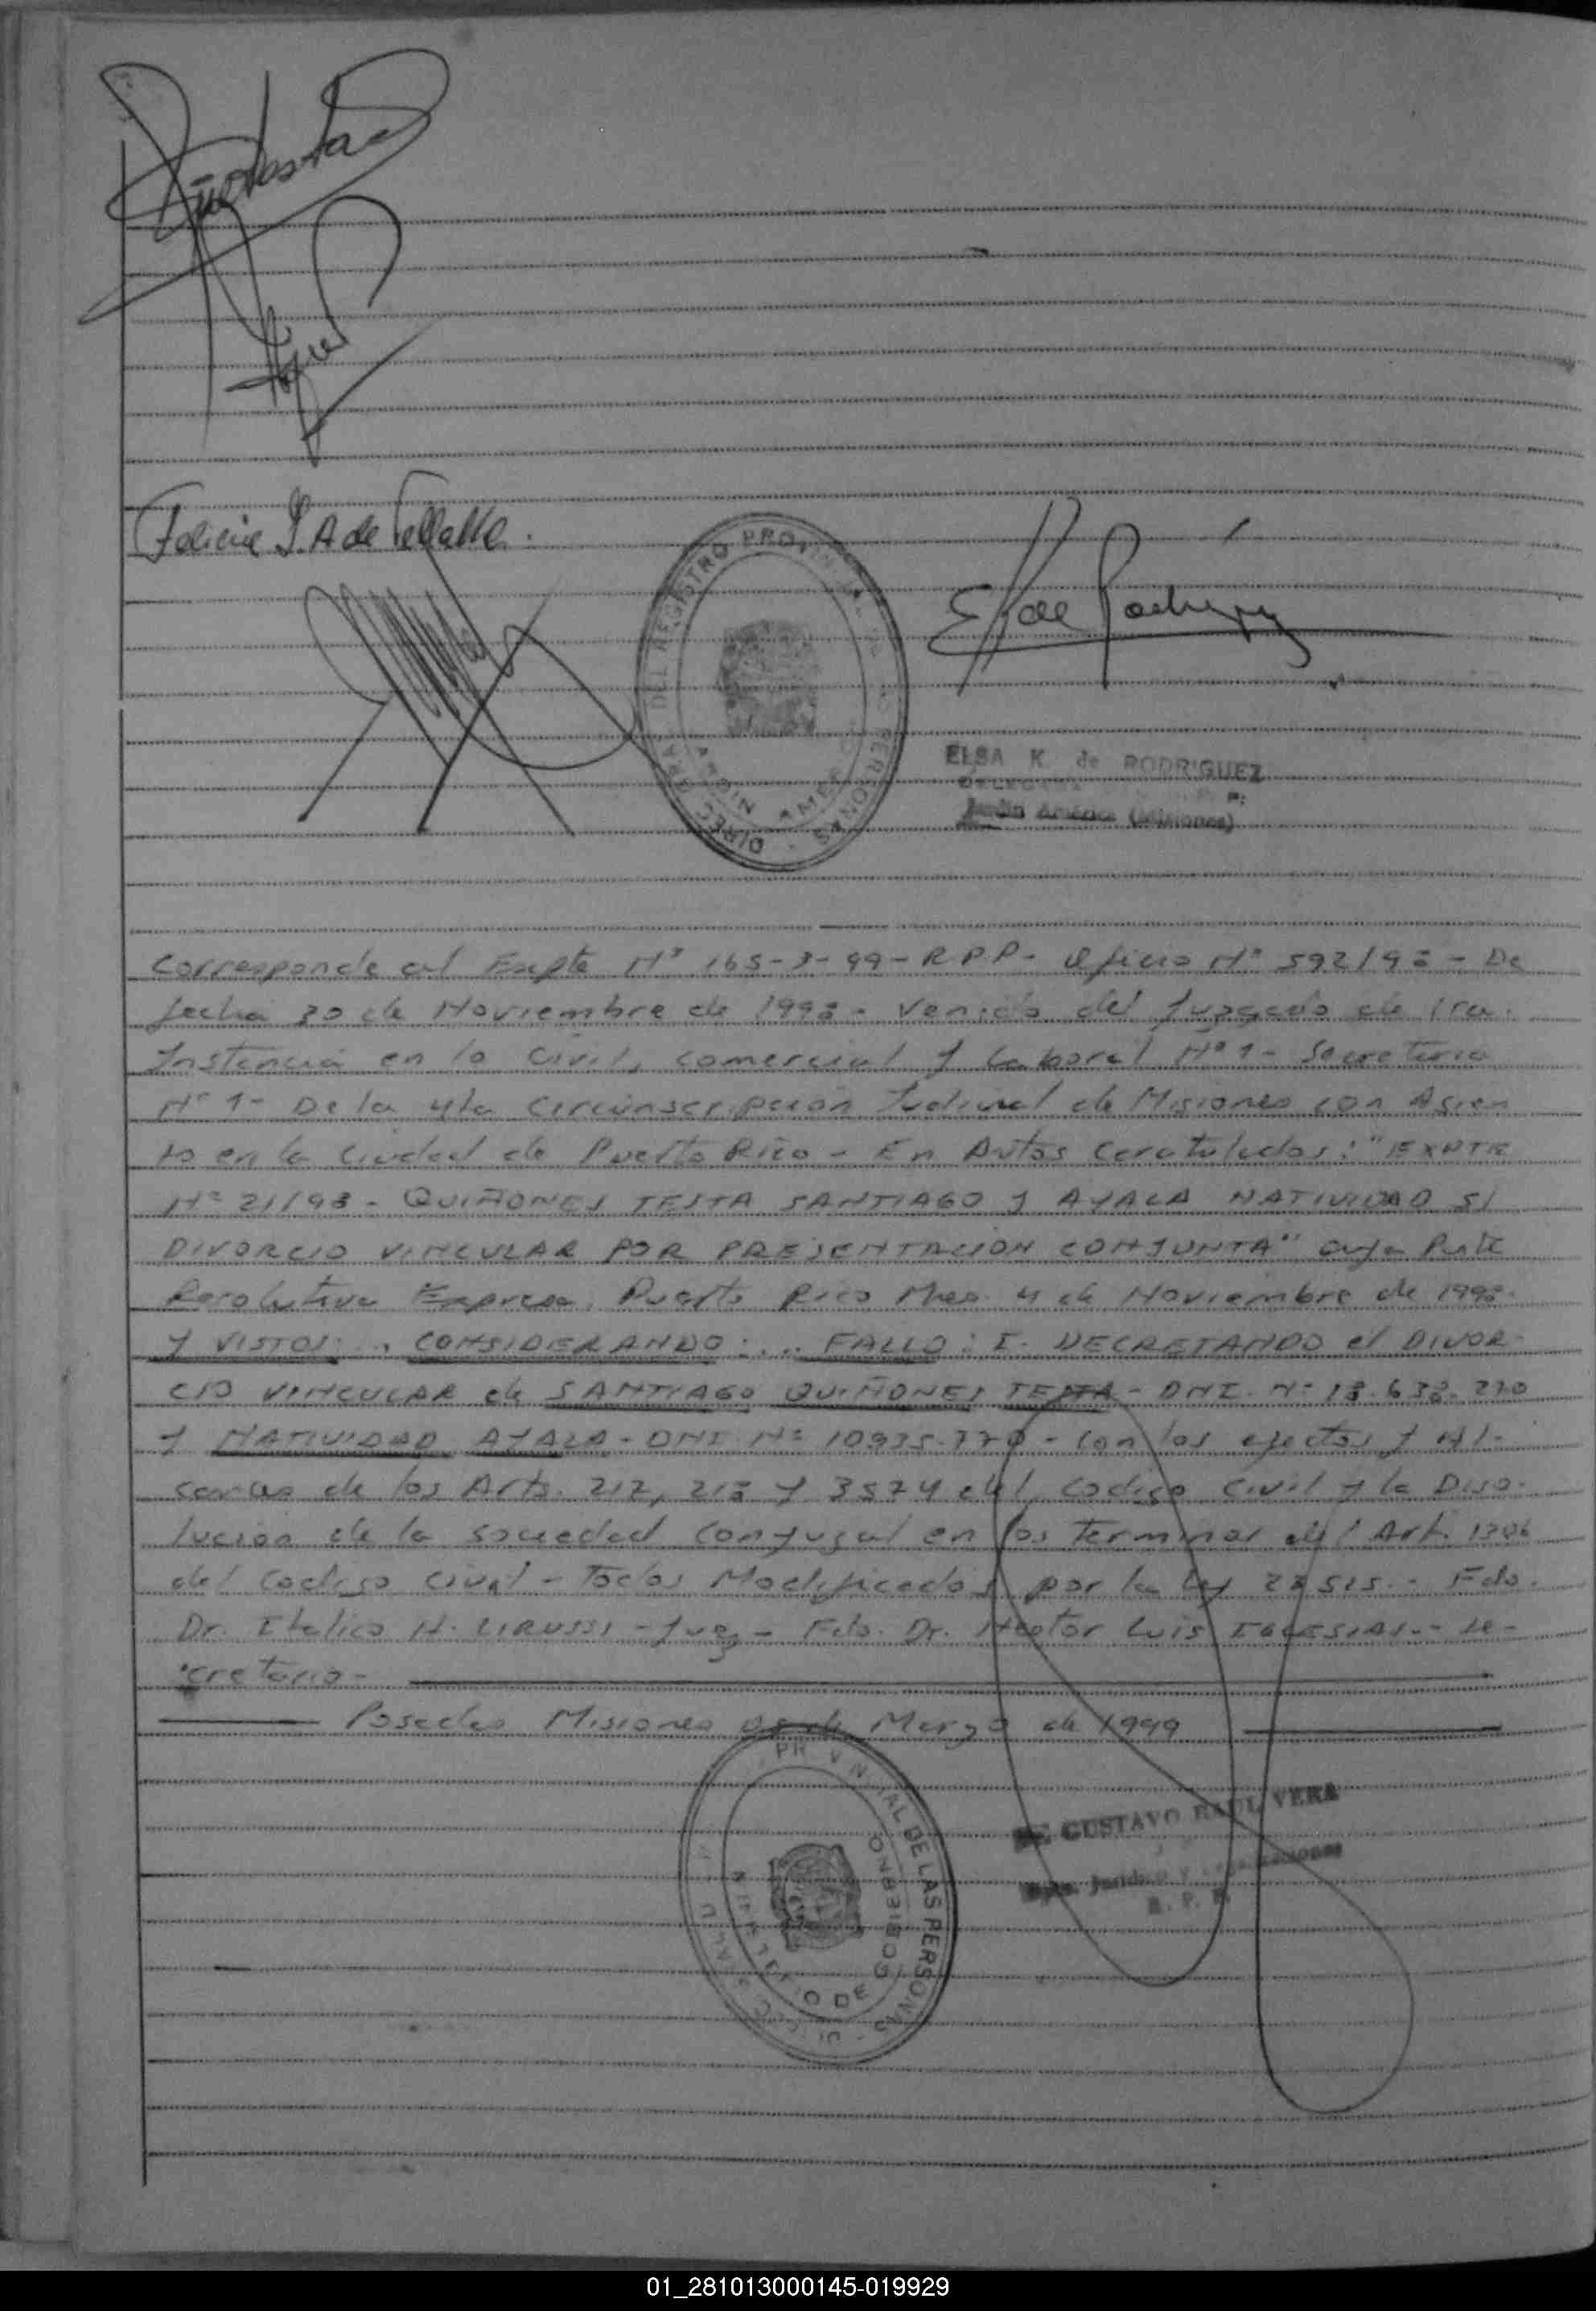 Felicia S. A de Vellalle.
DIREC. GRAL. DEL REGISTRO PROVINCIAL DE LAS PERSONAS
JARDIN AMERICA
ELSA K. de RODRIGUEZ
DELEGADA
Jardín América (Misiones)
Corresponde al Expte Nº 165-3-99-R.P.P- Oficio Nº 592/98 - De
fecha 30 de Noviembre de 1998- Venido del Juzgado de 1ra.
Instancia en lo Civil, comercial y Laboral Nº 1- Secretaria
Nº 1- De la 4ta Circunscripción Judicial de Misiones con Asien
to en la Ciudad de Puerto Rico - En Autos Caratulados: "EXPTE
Nº 21/98 - QUIÑONES TESTA SANTIAGO y AYALA NATIVIDAD S/
DIVORCIO VINCULAR POR PRESENTACION CONJUNTA" cuya Parte
Resolutiva Expresa, Puerto Rico Mnes. 4 de Noviembre de 1998.
Y VISTOS: . CONSIDERANDO: ... FALLO: I- DECRETANDO el DIVOR-
CIO VINCULAR de SANTIAGO QUIÑONES TESTA - DNI. Nº 18.638.270
y NATIVIDAD AYALA - DNI Nº 10935.770 - con los efectos y Al-
cances de los Arts. 217, 218 y 3574 del Codigo Civil y la Diso-
lucion de la sociedad Conyugal en los Terminos del Art. 1306
del Codigo Civil - Todos Modificados por la Ley 23515.- Fdo.
Dr. Italico H. LIRUSSI - Juez - Fdo. Dr. Hector Luis IGLESIAS.- Se-
cretario-
Posadas Misiones de Marzo de 1999
PROVINCIAL DE LAS PERSONAS
MINISTERIO DE GOBIERNO
GUSTAVO RAUL VERA
R. P. P.
01_281013000145-019929